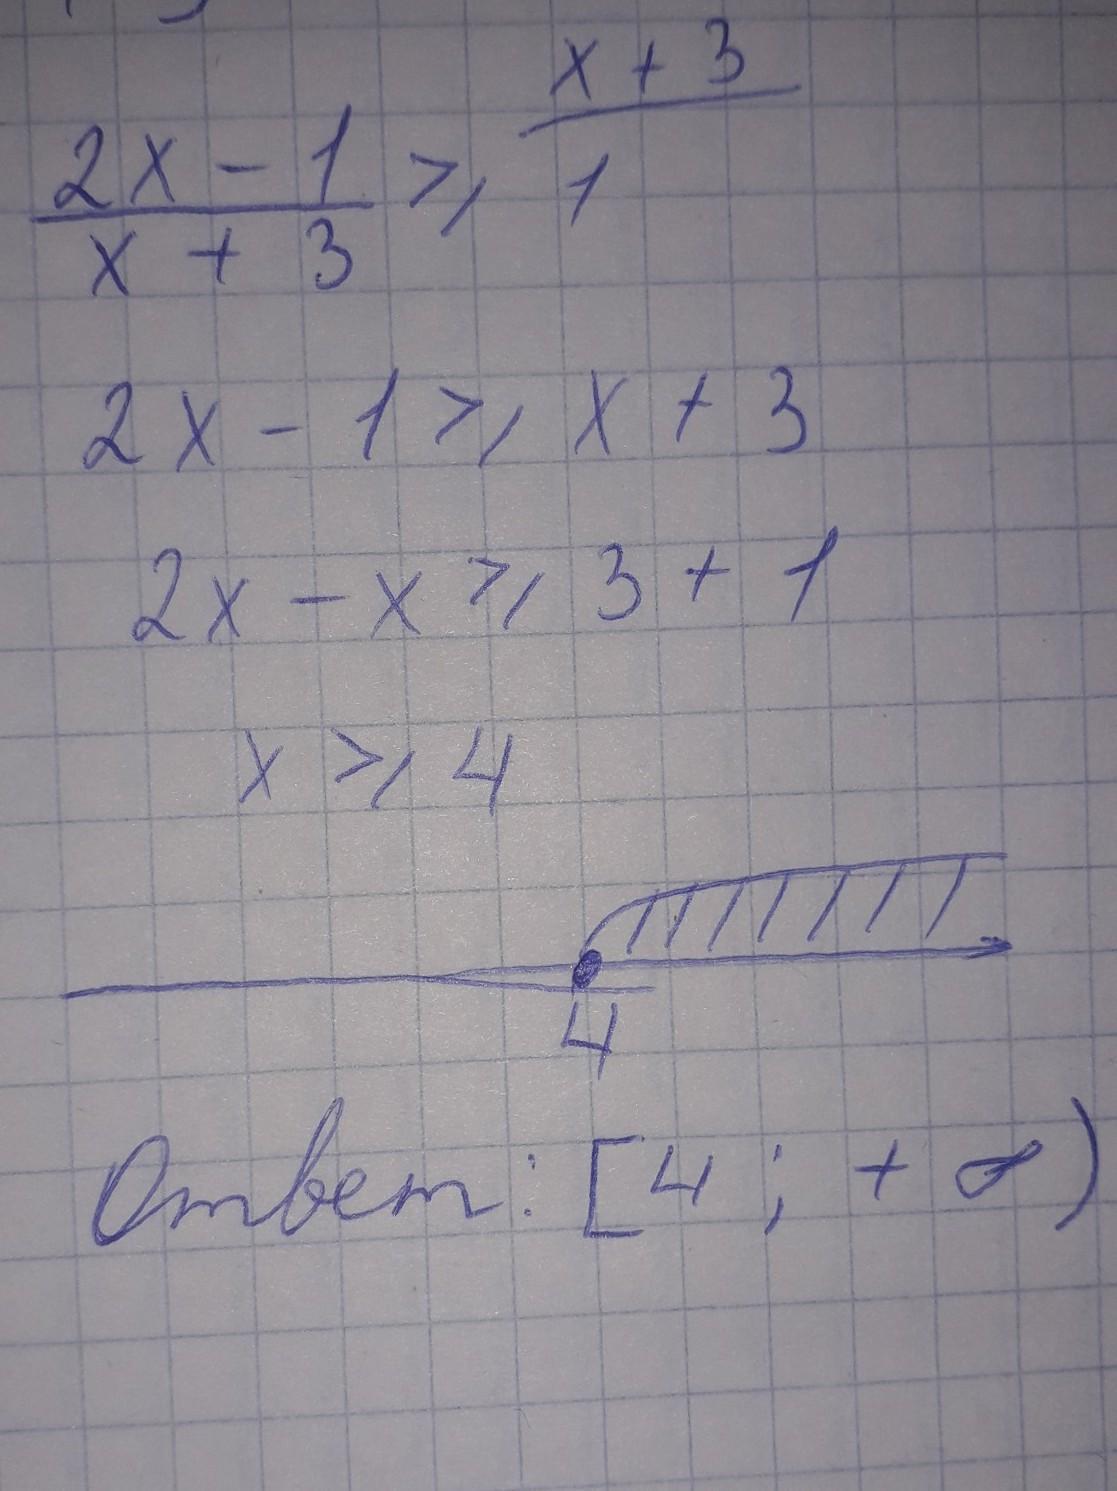 x + 3
2x - 1 ≥ 1
x + 3
2x - 1 ≥ x + 3
2x - x ≥ 3 + 1
x ≥ 4
4
Ответ: [4; + ∞)